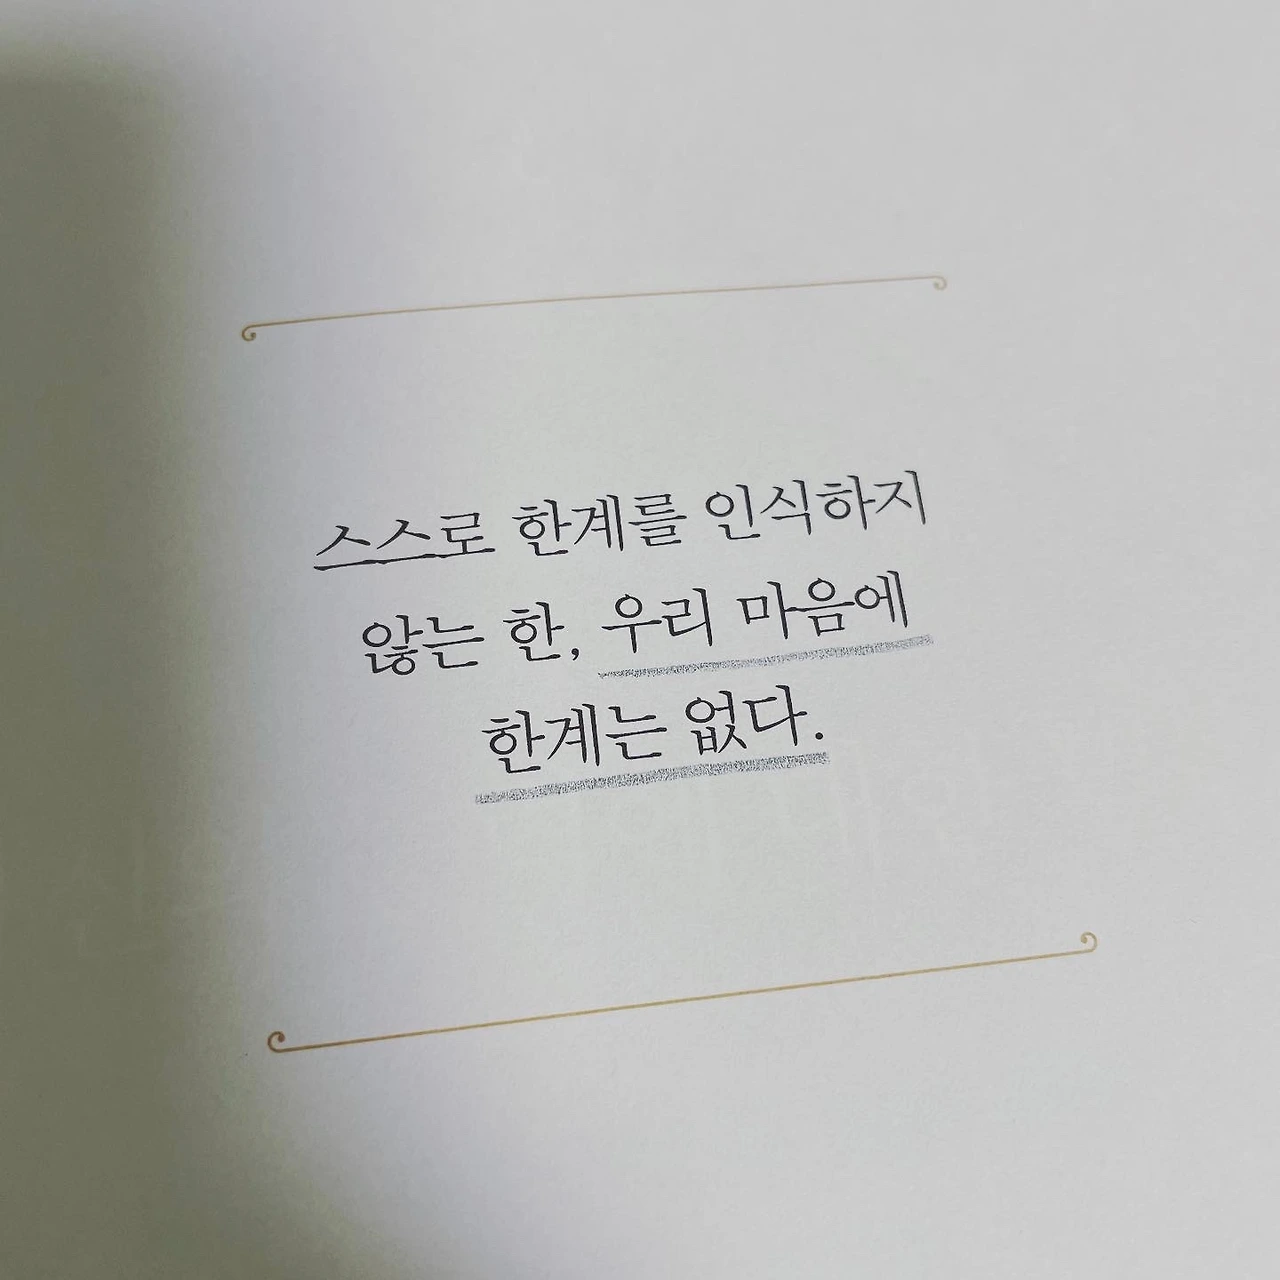 스스로 한계를 인식하지
않는 한, 우리 마음에
한계는 없다.